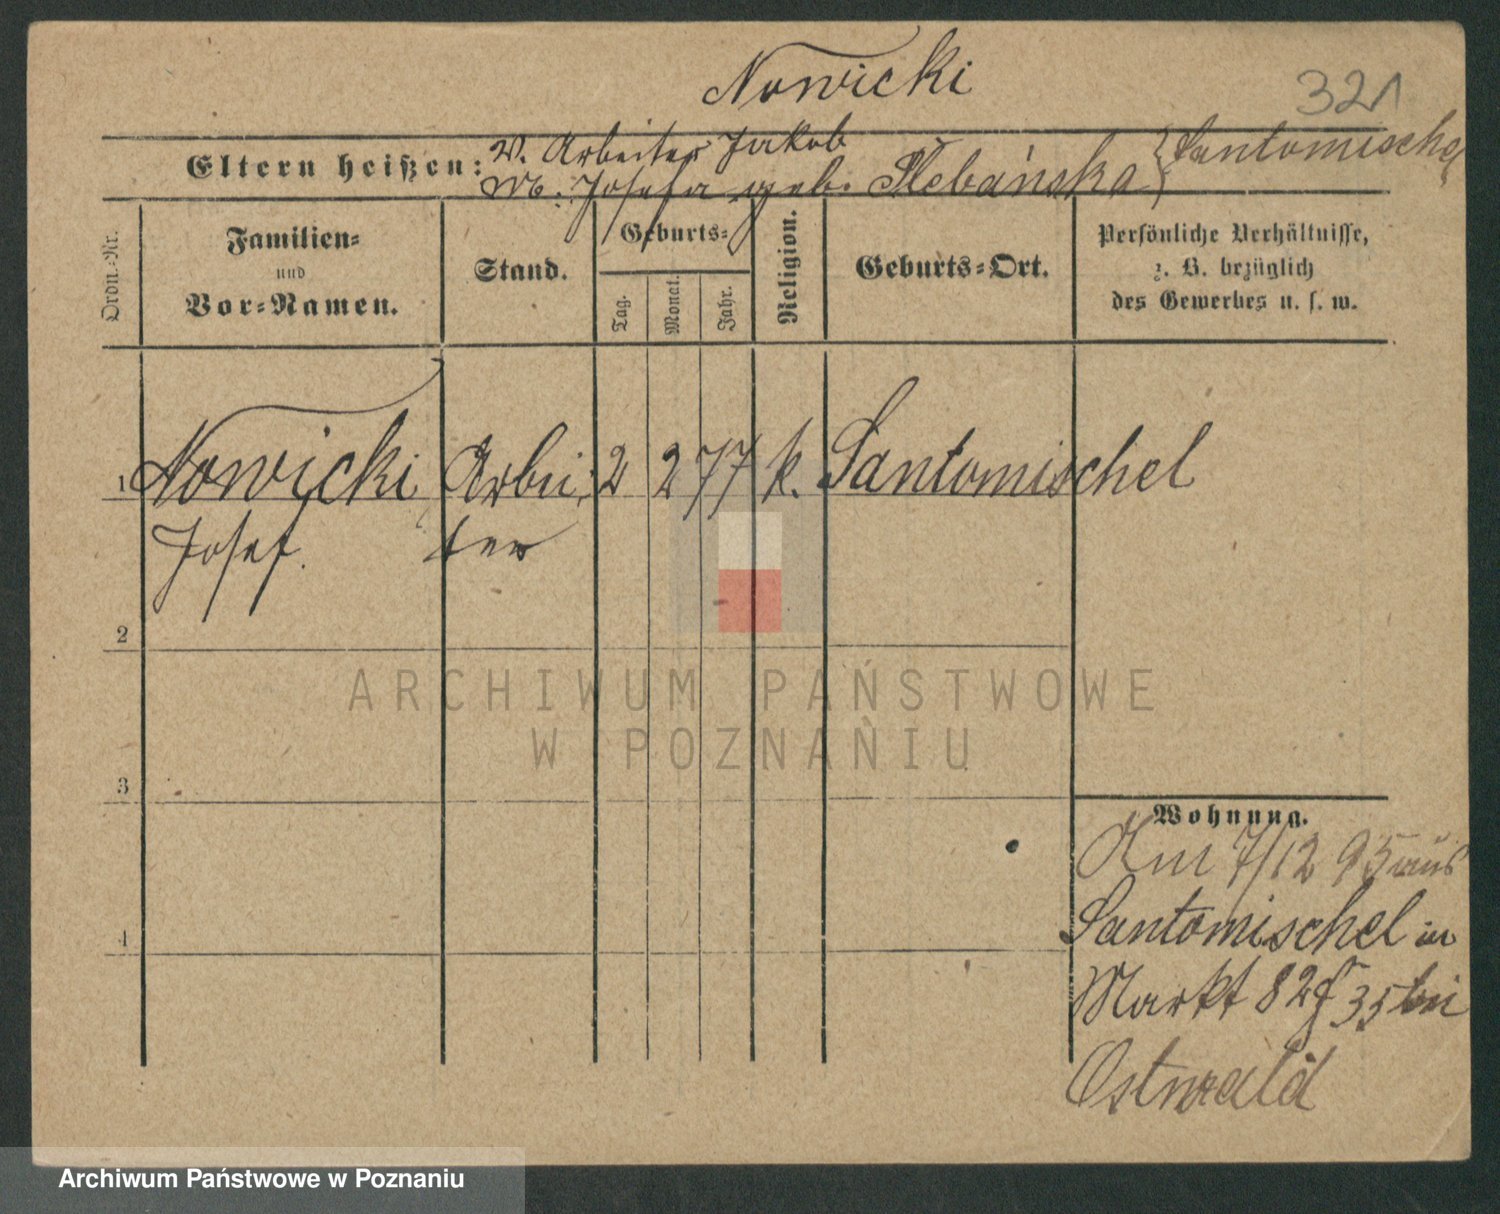 Nowicki
321
Eltern heißen:
V. Arbeiter Jakob
M. Josefa geb. Plebańska } Santomischel
Ordn.-Nr.
Familien-
und
Vor-Namen.
Stand.
Geburts-
Tag.
Monat.
Jahr.
Religion.
Geburts-Ort.
Persönliche Verhältnisse,
z. B. bezüglich
des Gewerbes u. s. w.
1 Nowicki Arbei- 2 2 77 k. Santomischel
Josef. ter
2
ARCHIWUM PAŃSTWOWE
W POZNANIU
3
Wohnung.
Am 7/12 95 aus
Santomischel in
4
Markt 82 35 bei
Ostwald
Archiwum Państwowe w Poznaniu